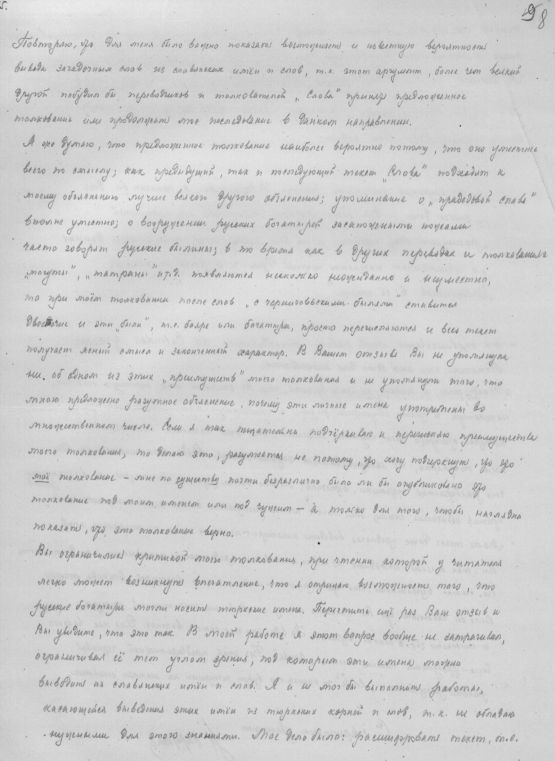 5.
98
Повторяю, что для меня было важно показать возможность и известную вероятность
вывода загадочных слов из славянских имён и слов, т.к. этот аргумент, более чем всякий
другой побудил бы переводчиков и толкователей „Слова" принять предложенное
толкование или продолжить моё исследование в данном направлении.
Я же думаю, что предложенное толкование наиболее вероятно потому, что оно уместнее
всего по смыслу; как предыдущий, так и последующий текст „Слова" подходит к
моему объяснению лучше всякого другого объяснения; упоминание о „прадедовой славе"
вполне уместно; о вооружении русских богатырей засапожными ножами
часто говорят русские былины; в то время как в других переводах и толкованиях
„могуты", „татраны" и т.д. появляются несколько неожиданно и неуместно,
то при моём толковании после слов „с черниговскими былями" ставится
двоеточие и эти „были", т.е. бояре или богатыри, просто перечисляются и весь текст
получает ясный смысл и законченный характер. В Вашем отзыве Вы не упомянули
ни об одном из этих „преимуществ" моего толкования и не упомянули того, что
мною предложено разумное объяснение, почему эти личные имена употреблены во
множественном числе. Если я так тщательно подчёркиваю и перечисляю преимущества
моего толкования, то делаю это, разумеется не потому, что хочу подчеркнуть, что это
моё толкование – мне по существу почти безразлично было ли бы опубликовано это
толкование под моим именем или под чужим – а только для того, чтобы наглядно
показать, что это толкование верно.
Вы ограничились критикой моего толкования, при чтении которой у читателя
легко может возникнуть впечатление, что я отрицаю возможность того, что
русские богатыри могли носить тюркские имена. Перечтите ещё раз Ваш отзыв и
Вы увидите, что это так. В моей работе я этот вопрос вообще не затрагивал,
ограничивая её тем углом зрения, под которым эти имена можно
выводить из славянских имён и слов. Я и не мог бы выполнить работы,
касающейся выведения этих имён из тюркских корней и слов, т.к. не обладаю
нужными для этого знаниями. Моё дело было: расшифровать текст, т.е.